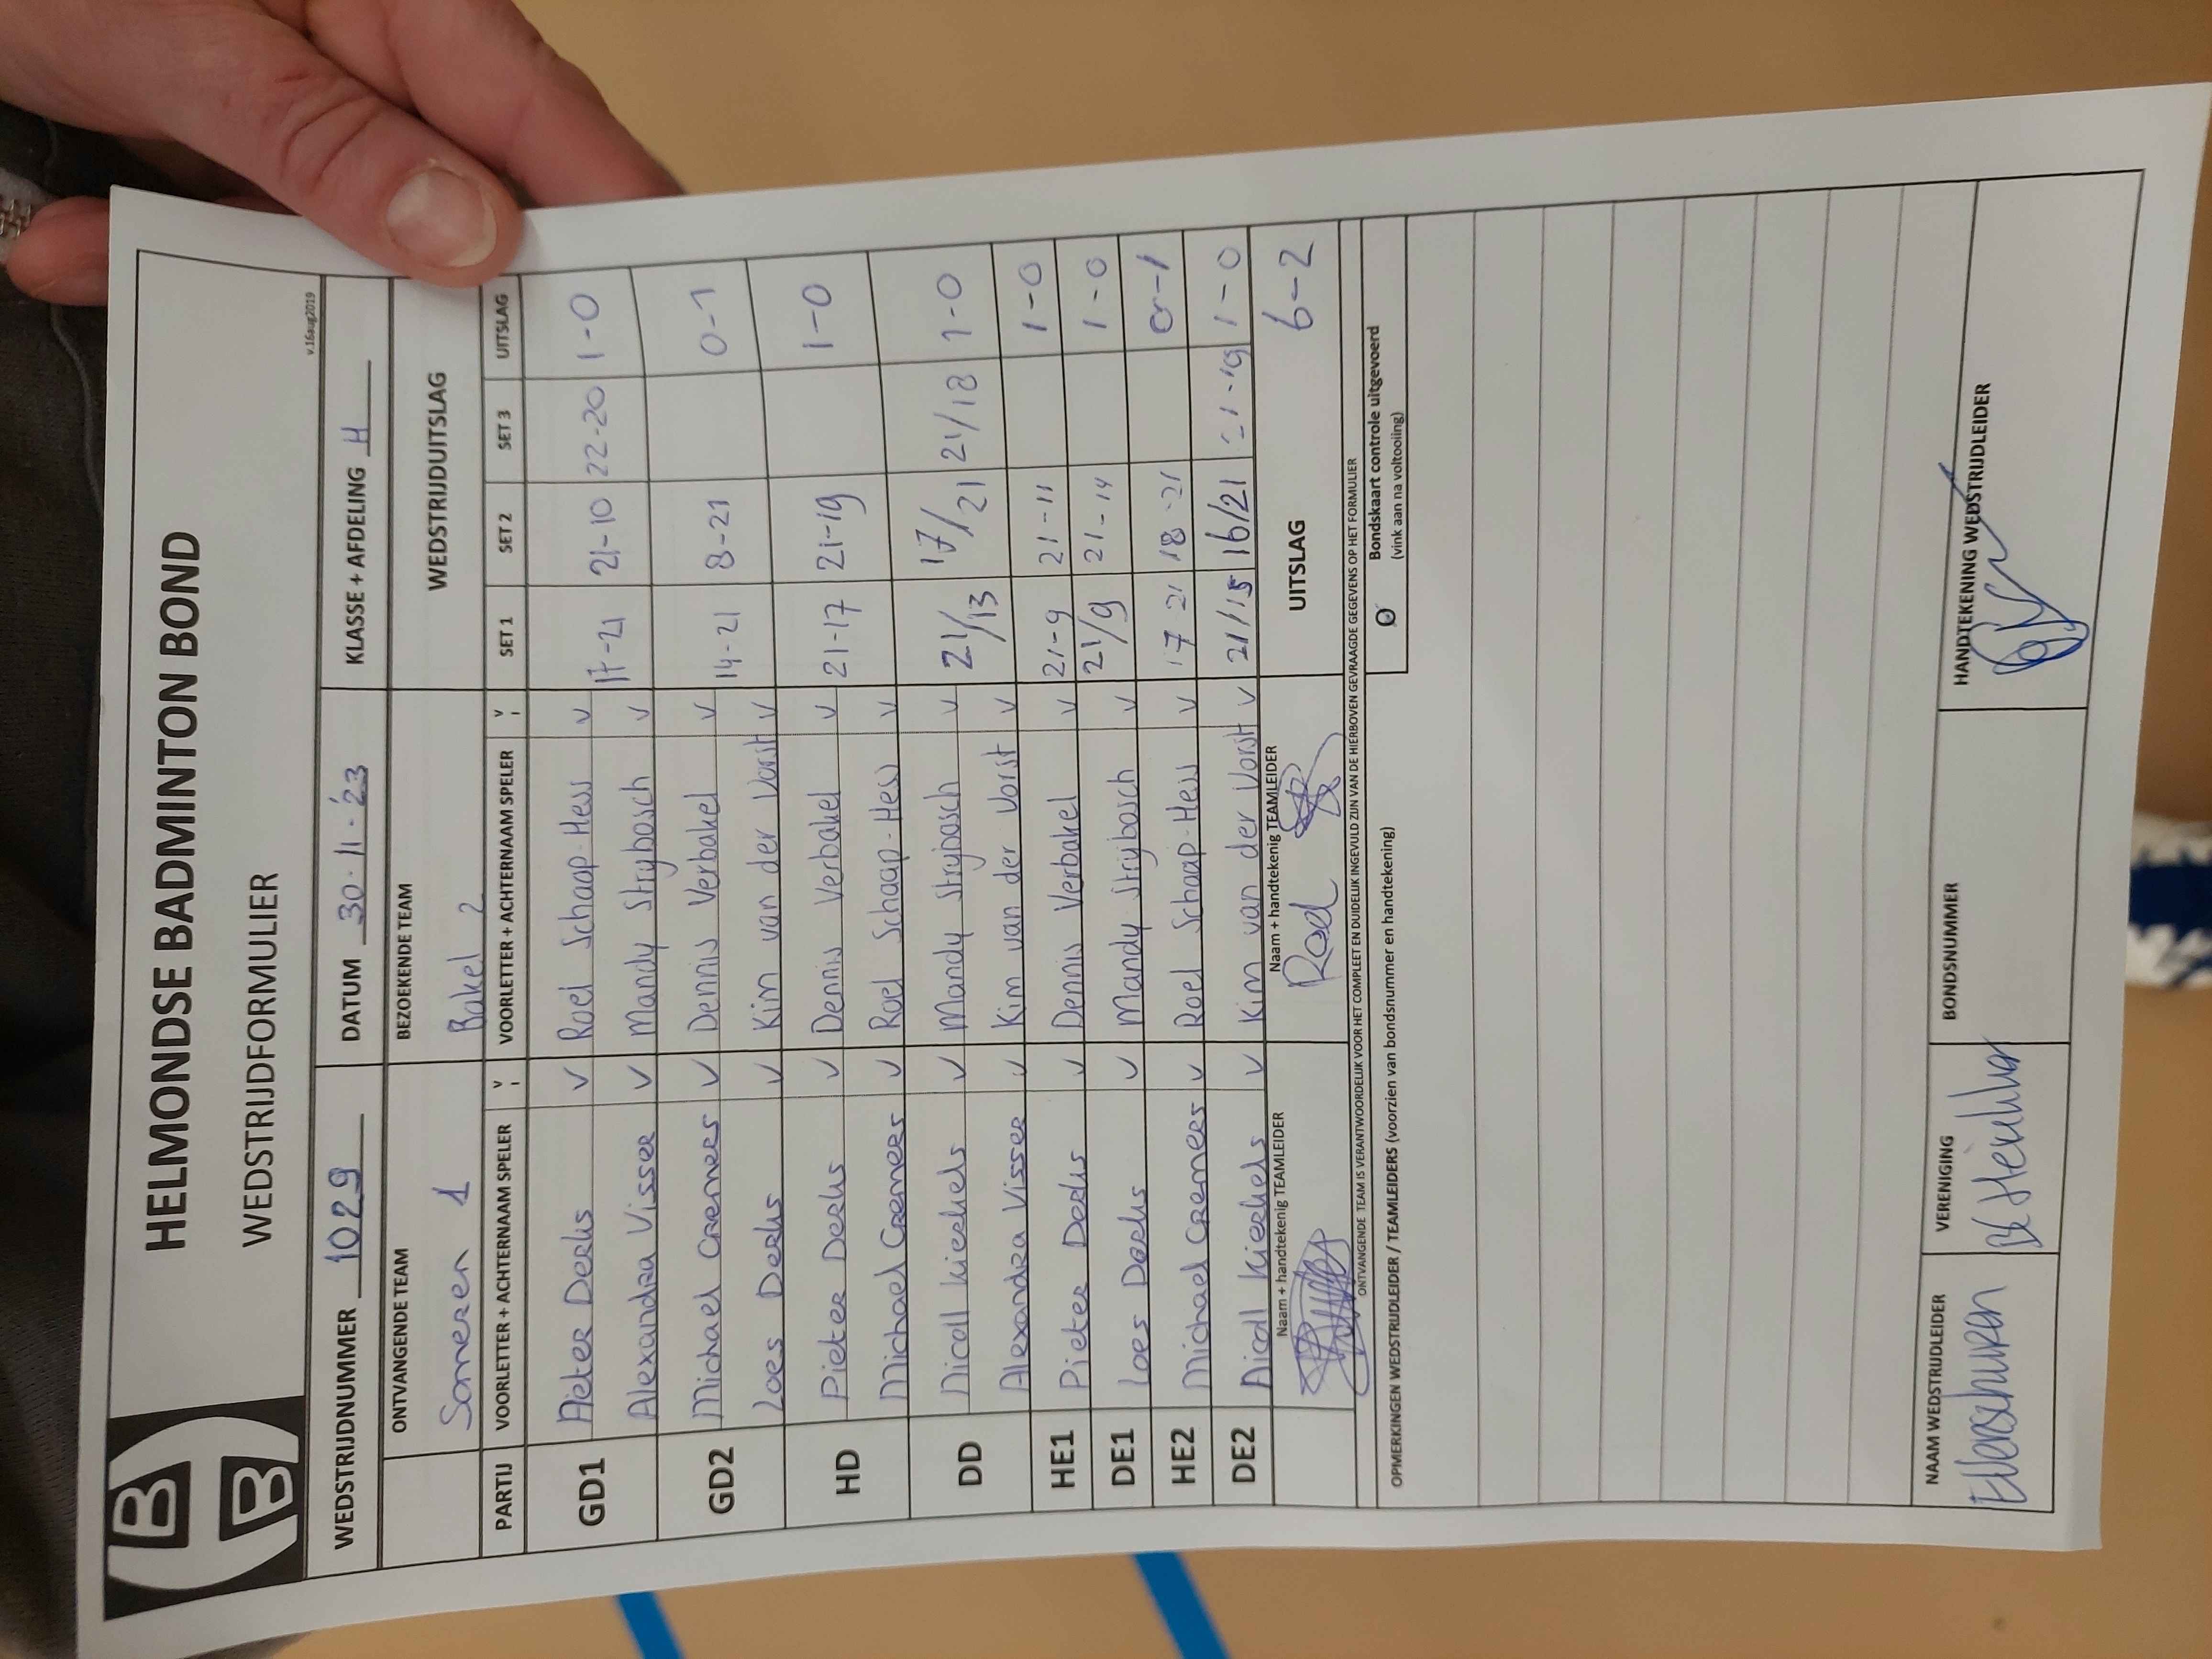 HELMONDSE BADMINTON BOND
WEDSTRIJDFORMULIER
v.16aug2019
WEDSTRIJDNUMMER 1029 DATUM 30-11-'23 KLASSE + AFDELING H
ONTVANGENDE TEAM BEZOEKENDE TEAM WEDSTRIJDUITSLAG
Someren 1 Bakel 2
PARTIJ VOORLETTER + ACHTERNAAM SPELER V VOORLETTER + ACHTERNAAM SPELER V SET 1 SET 2 SET 3 UITSLAG
GD1 Pieter Derks v Roel Schaap-Hess v 17-21 21-10 22-20 1-0
Alexandra Visser v Mandy Strijbosch v
GD2 Michael Cremers v Dennis Verbakel v 14-21 8-21 0-1
Loes Derks v Kim van der Vorst v
HD Pieter Derks v Dennis Verbakel v 21-17 21-19 1-0
Michael Cremers v Roel Schaap-Hess v
DD Nicoll Kierkels v Mandy Strijbosch v 21/13 17/21 21/18 1-0
Alexandra Visser v Kim van der Vorst v
HE1 Pieter Derks v Dennis Verbakel v 21-9 21-11 1-0
DE1 Loes Derks v Mandy Strijbosch v 21/9 21-14 1-0
HE2 Michael Cremers v Roel Schaap-Hess v 17 21 18-21 0-1
DE2 Nicol Kierkels v Kim van der Vorst v 21/15 16/21 21-19 1-0
Naam + handtekenig TEAMLEIDER Naam + handtekenig TEAMLEIDER UITSLAG 6-2
Roel
ONTVANGENDE TEAM IS VERANTWOORDELIJK VOOR HET COMPLEET EN DUIDELIJK INGEVULD ZIJN VAN DE HIERBOVEN GEVRAAGDE GEGEVENS OP HET FORMULIER
OPMERKINGEN WEDSTRIJDLEIDER / TEAMLEIDERS (voorzien van bondsnummer en handtekening)
Bondskaart controle uitgevoerd
(vink aan na voltooiing)
NAAM WEDSTRIJDLEIDER VERENIGING BONDSNUMMER HANDTEKENING WEDSTRIJDLEIDER